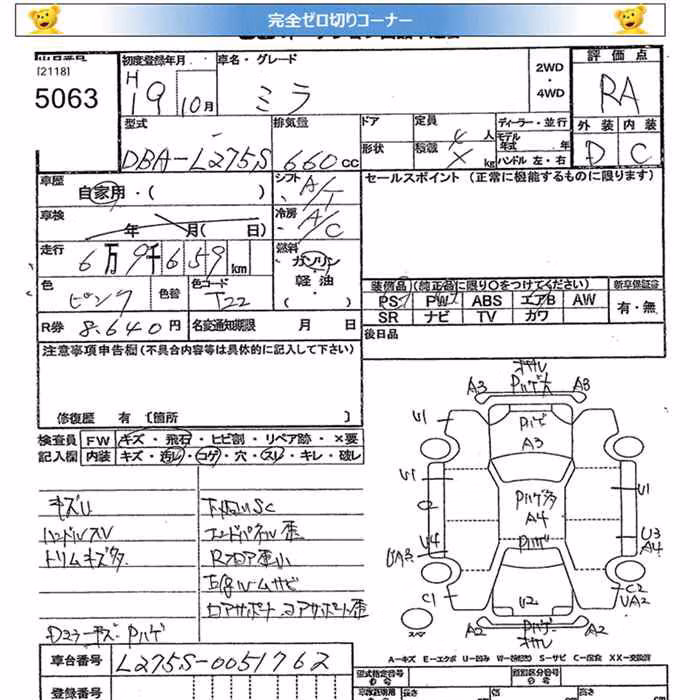 完全ゼロ切りコーナー
[2118]
5063
初度登録年月
H19 10月
車名・グレード
ミラ
2WD
・
4WD
評価点
RA
外装 内装
D C
型式
DBA-L275S
排気量
660 cc
ドア
形状
定員 4 人
積載 X kg
ディーラー・並行
モデル年式 年
ハンドル 左・右
車歴
自家用・( )
シフト
A/T
セールスポイント (正常に機能するものに限ります)
車検
年 月( 日)
冷房
A/C
走行
6万9千659km
燃料
ガソリン
軽油
・( )
色
ピンク
色替
色コード
T22
装備品 (純正品に限り○をつけてください)
新車保証書
PS PW ABS エアB AW
SR ナビ TV カワ
有・無
R券 8.640円
名変通知期限 月 日
後日品
注意事項申告欄 (不具合内容等は具体的に記入して下さい)
修復歴 有 〔箇所 〕
検査員 FW キズ・飛石・ヒビ割・リペア跡・×要
記入欄 内装 キズ・汚レ・コゲ・穴・スレ・キレ・破レ
キズU
ハンドルスV
トリムキズ多
下回りSC
エンドパネル歪
Rフロア歪小
コアサポート コアサポート歪
Dミラーキズ Pハゲ
A3
A3
U1
A3
U1
C2
U4
UA3
C1
Pハゲ多
A4
U1
U3
A4
C2
UA2
U2
A2
A2
A-キズ E-エクボ U-凹み S-サビ C-腐食 XX-交換済
車台番号 L275S-0051762
登録番号
型式指定番号
類別区分番号
長さ 幅 高さ